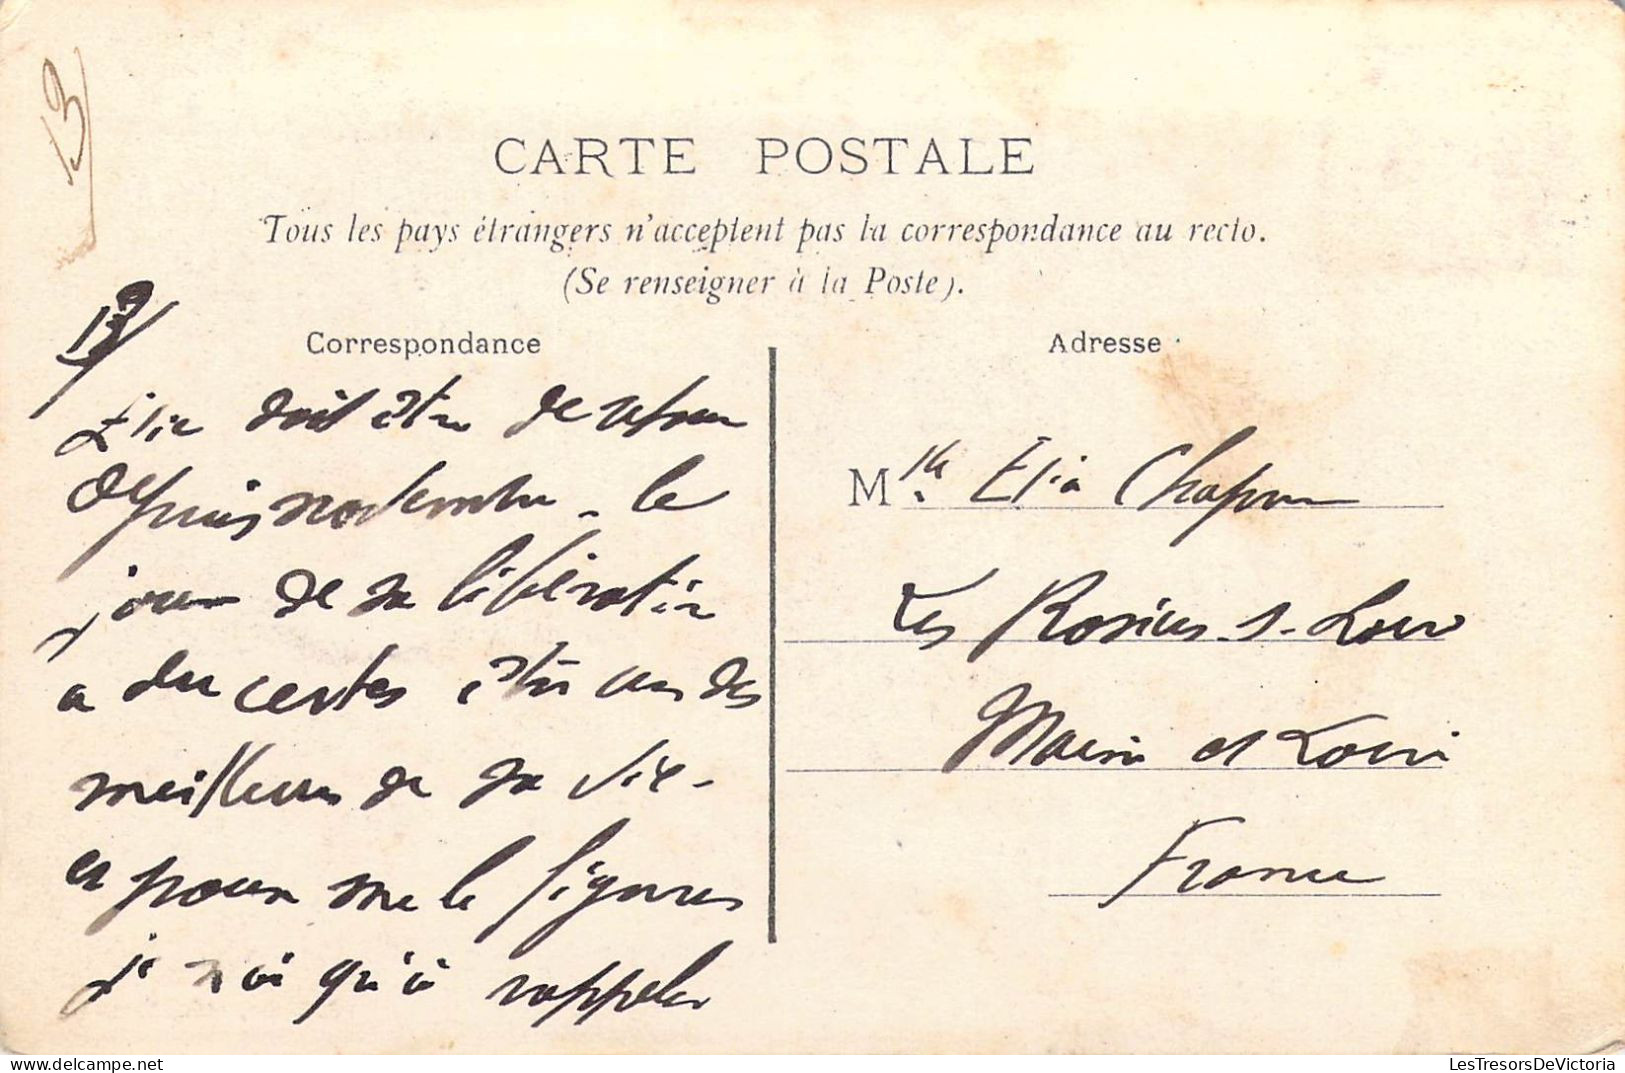 13
CARTE POSTALE
Tous les pays étrangers n'acceptent pas la correspondance au recto.
(Se renseigner à la Poste).
Correspondance
Adresse
13
Elie doit être de retour
depuis novembre - le
jour de sa libération
a du certes être un des
meilleurs de sa vie -
et pour me le figurer
je n'ai qu'à rappeler
Mlle Elia Chapron
Les Rosiers s. Loire
Maine et Loire
France
LesTresorsDeVictoria